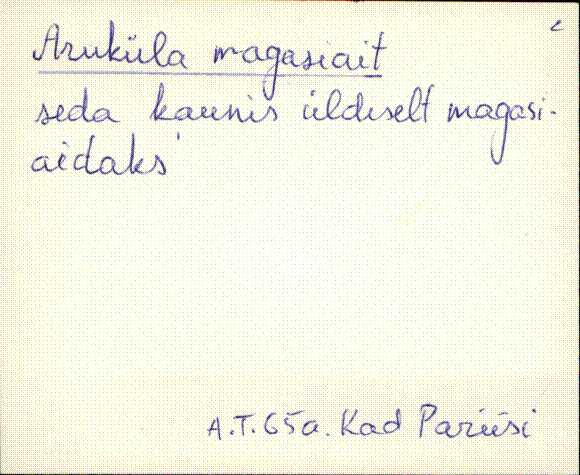 Aruküla magasiait
seda kaunis üldiselt magasi-
aidaks'
A.T. 65a. Kad Pariisi